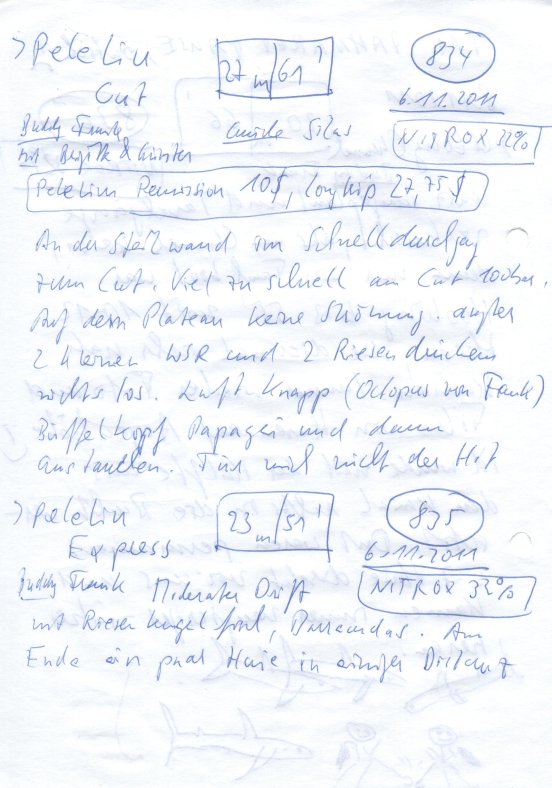 > Peleliu 27m/61' 834
Cut 6.11.2011
Buddy Frank Guide Silas NITROX 32%
mit Birgitte & Günter
Peleliu Permission 10$, longtrip 27,75$
An der Steilwand im Schnelldurchgang
zum Cut. Viel zu schnell am Cut 100bar.
Auf dem Plateau keine Strömung. außer
2 kleinen WSR und 2 Riesen
nichts los. Luft knapp (Octopus von Frank)
Büffelkopf Papagei und dann
austauchen. Für mich nicht der Hit
> Peleliu 23m/51' 835
Express 6.11.2011
Buddy Frank Moderater Drift NITROX 32%
mit Riesen Kugelfisch, Barracudas. Am
Ende ein paar Haie in einiger Distanz